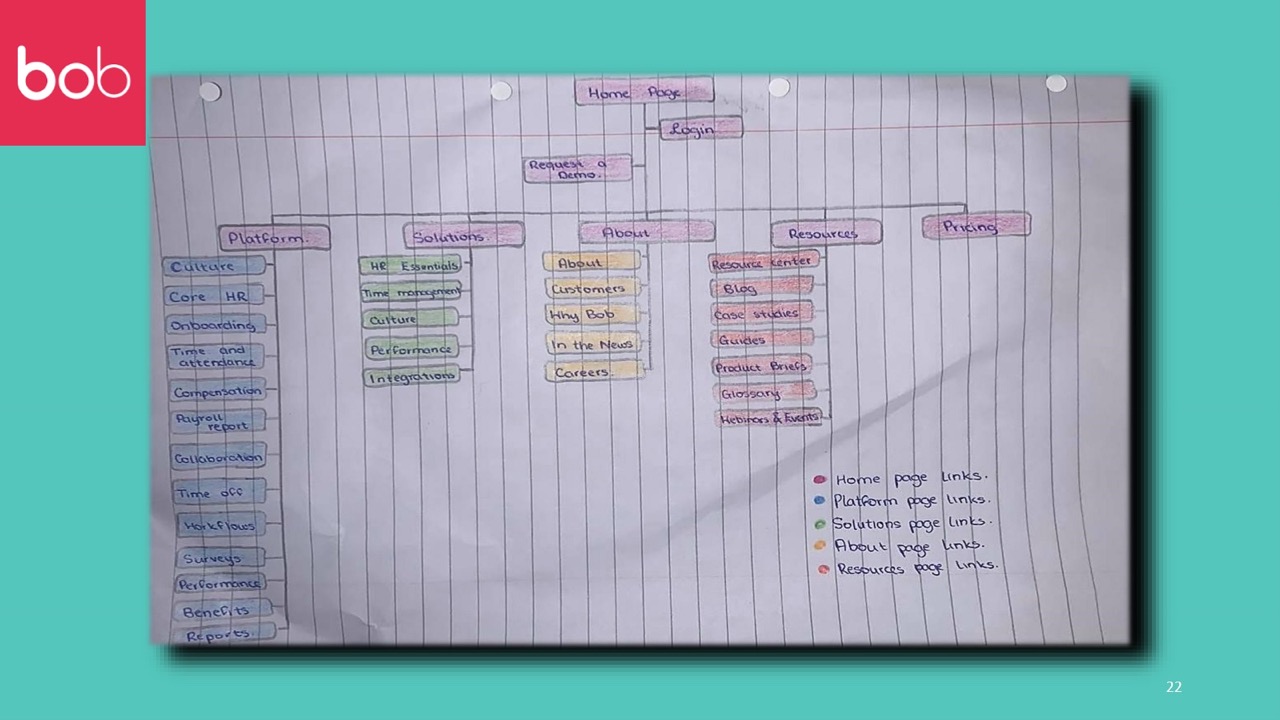 bob
Home Page
Login
Request a
Demo.
Platform.
Solutions.
About
Resources
Pricing
Culture
Core HR
Onboarding
Time and
attendance
Compensation
Payroll
report
Collaboration
Time off
Workflows
Surveys
Performance
Benefits
Reports.
HR Essentials
Time management
Culture
Performance
Integrations
About
Customers
Why Bob
In the News
Careers.
Resource center
Blog
Case studies
Guides
Product Briefs
Glossary
Webinars & Events
Home page links.
Platform page links.
Solutions page links.
About page links.
Resources page links.
22